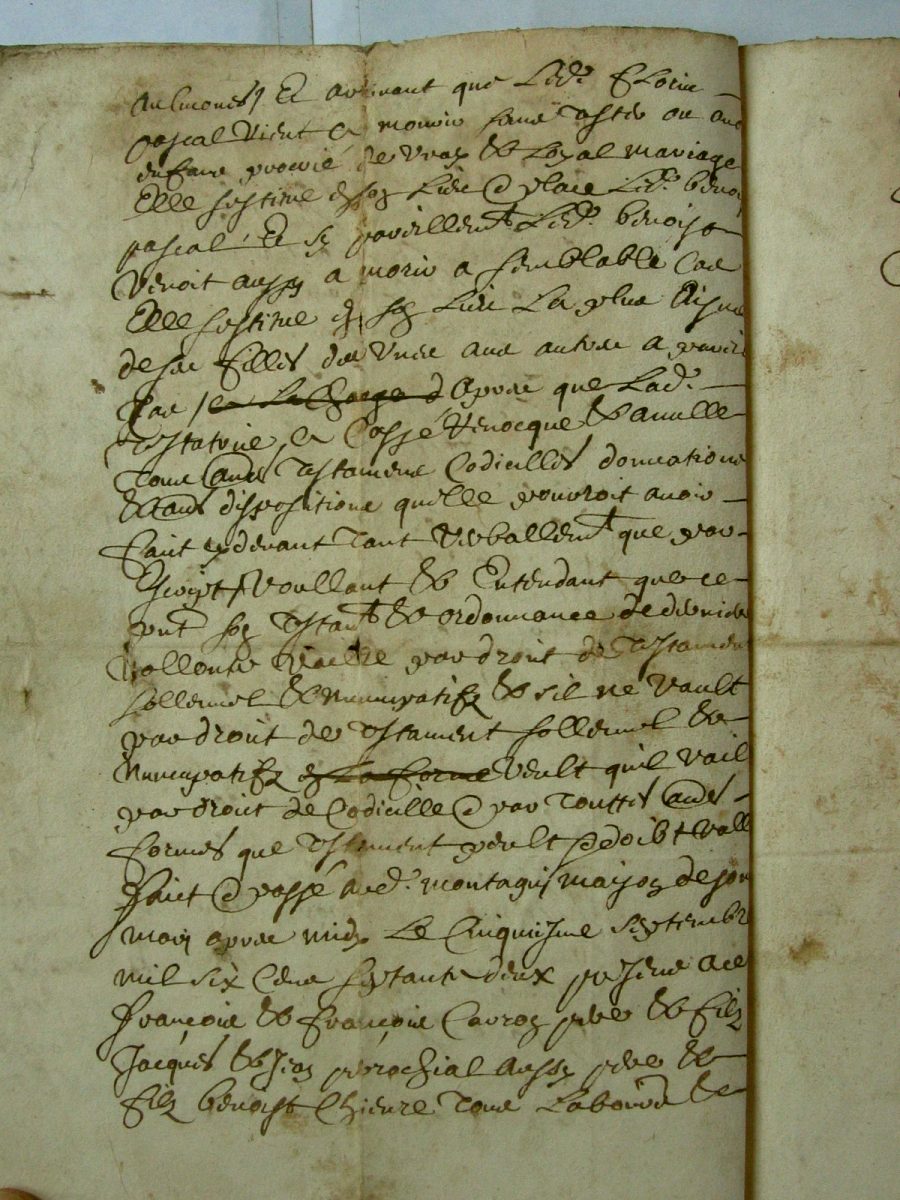 aulmones / Et advenant que led.t Florin
pascal vient a mourir sans tester ou sans
enfans procreé de vray & loyal mariage
Elle substitue en son lieu & place led.t benoist
pascal Et sy pareillem.t led.t benoist
venoit aussy a morir a semblable cas
Elle substitue en son lieu la plus aisnee
de ses filles de l'une aux autres a
par / Apres que lad.te
Testatrice a Cassé Revocque & anulle
Tous aues Testamens Codicilles donnations
& aues dispositions quelle pourroit avoir
faict cy devant tant verballem.t que par
Escript / Voullant & Entendant que ce
pnt son Testam.t & ordonnance de derniere
vollonte vaille par droit de Testament
sollemnel & nuncupatifz & sil ne vault
par droit de Testament sollemnel &
nuncupatifz veult quil vaille
par droit de Codicille & par touttes aues
formes que Testament peult & doibt valloir
Faict & passé aud.t montagny maison de son
mary apres midy le Cinquiesme septembre
mil six Cens septante deux presens a ce
François & François Carroz pere & filz
Jacques & Jean perochial aussy pere &
filz benoist Chievre Tous laboureurs &